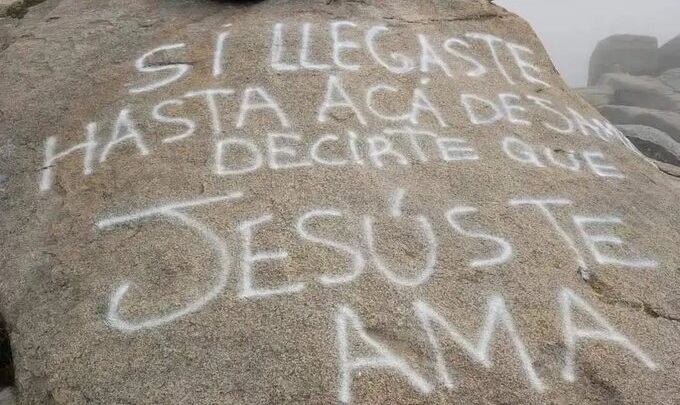 SÍ LLEGASTE
HASTA ACÁ DEJAME
DECIRTE QUE
JESÚS TE
AMA